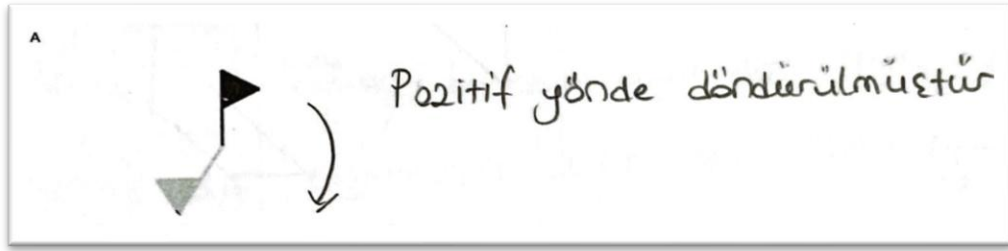 A
Pozitif yönde döndürülmüştür